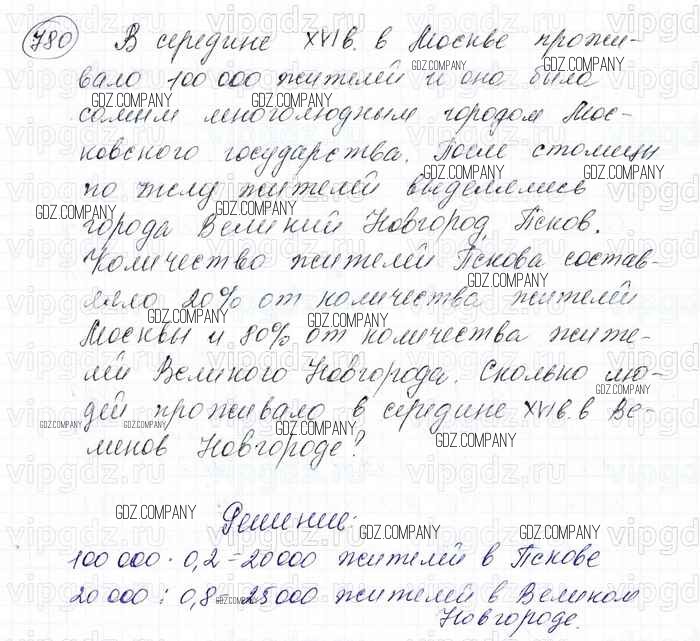 780 В середине XVI в. в Москве прожи-
вало 100 000 жителей и она была
самым многолюдным городом Мос-
ковского государства. После столицы
по числу жителей выделялись
города Великий Новгород, Псков.
Количество жителей Пскова состав-
ляло 20% от количества жителей
Москвы и 80% от количества жите-
лей Великого Новгорода. Сколько лю-
дей проживало в середине XVI в. в Ве-
ликом Новгороде?
Решение:
100 000 · 0,2 = 20000 жителей в Пскове
20 000 : 0,8 = 25000 жителей в Великом
Новгороде.